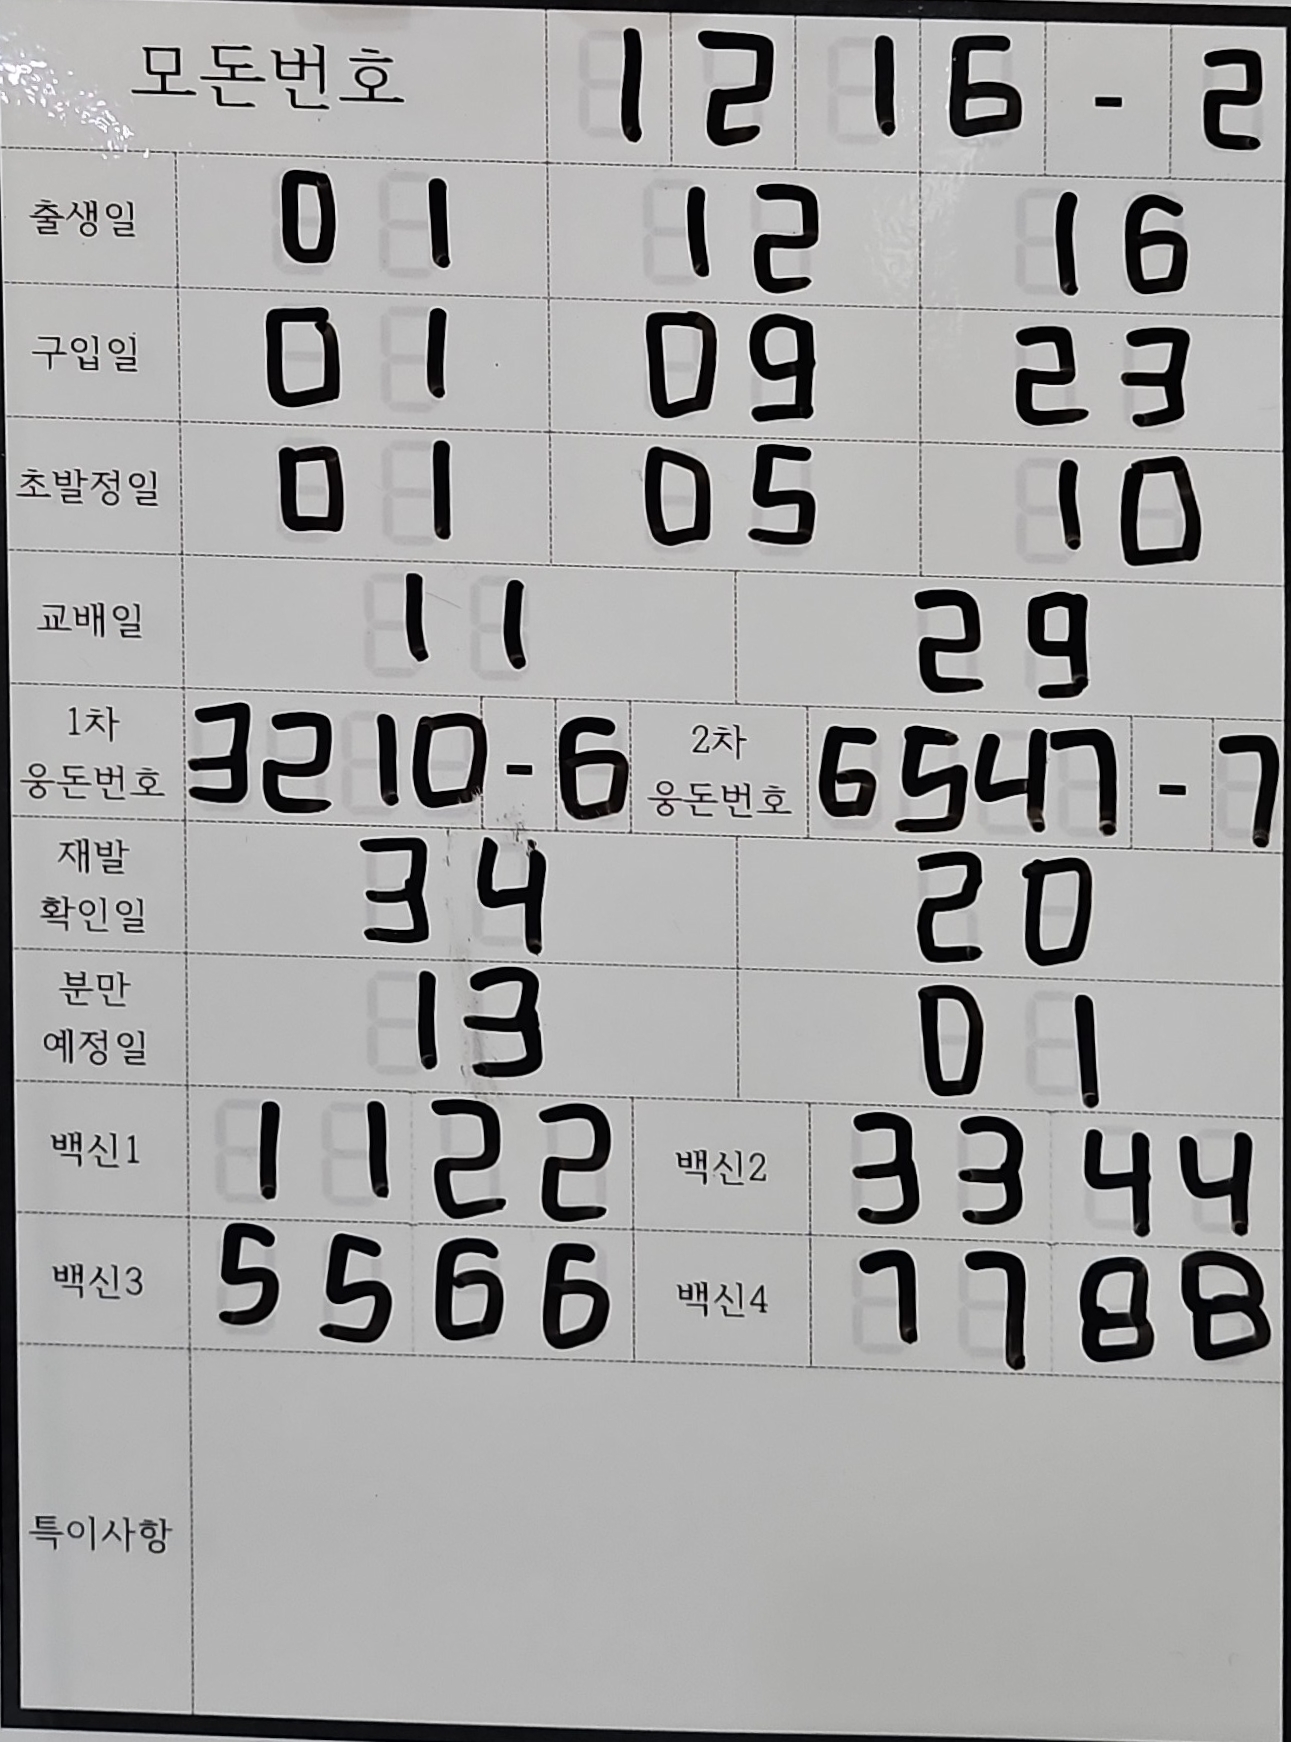 모돈번호 1216-2
출생일 01 12 16
구입일 01 09 23
초발정일 01 05 10
교배일 11 29
1차 웅돈번호 3210-6 2차 웅돈번호 6547-7
재발 확인일 34 20
분만 예정일 13 01
백신1 1122 백신2 3344
백신3 5566 백신4 7788
특이사항